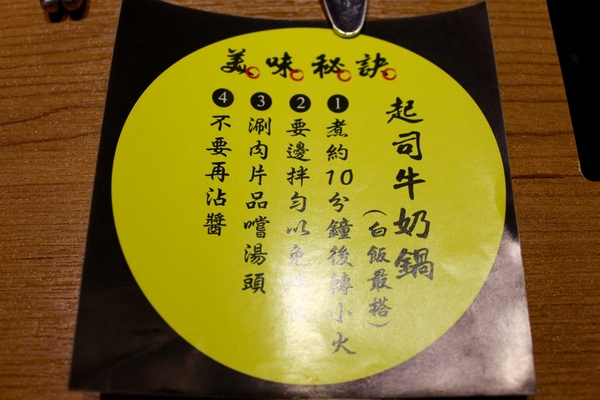 美味秘訣
起司牛奶鍋
(白飯最搭)
❶煮約10分鐘後轉小火
❷要邊拌勻以免
❸涮肉片品嚐湯頭
❹不要再沾醬